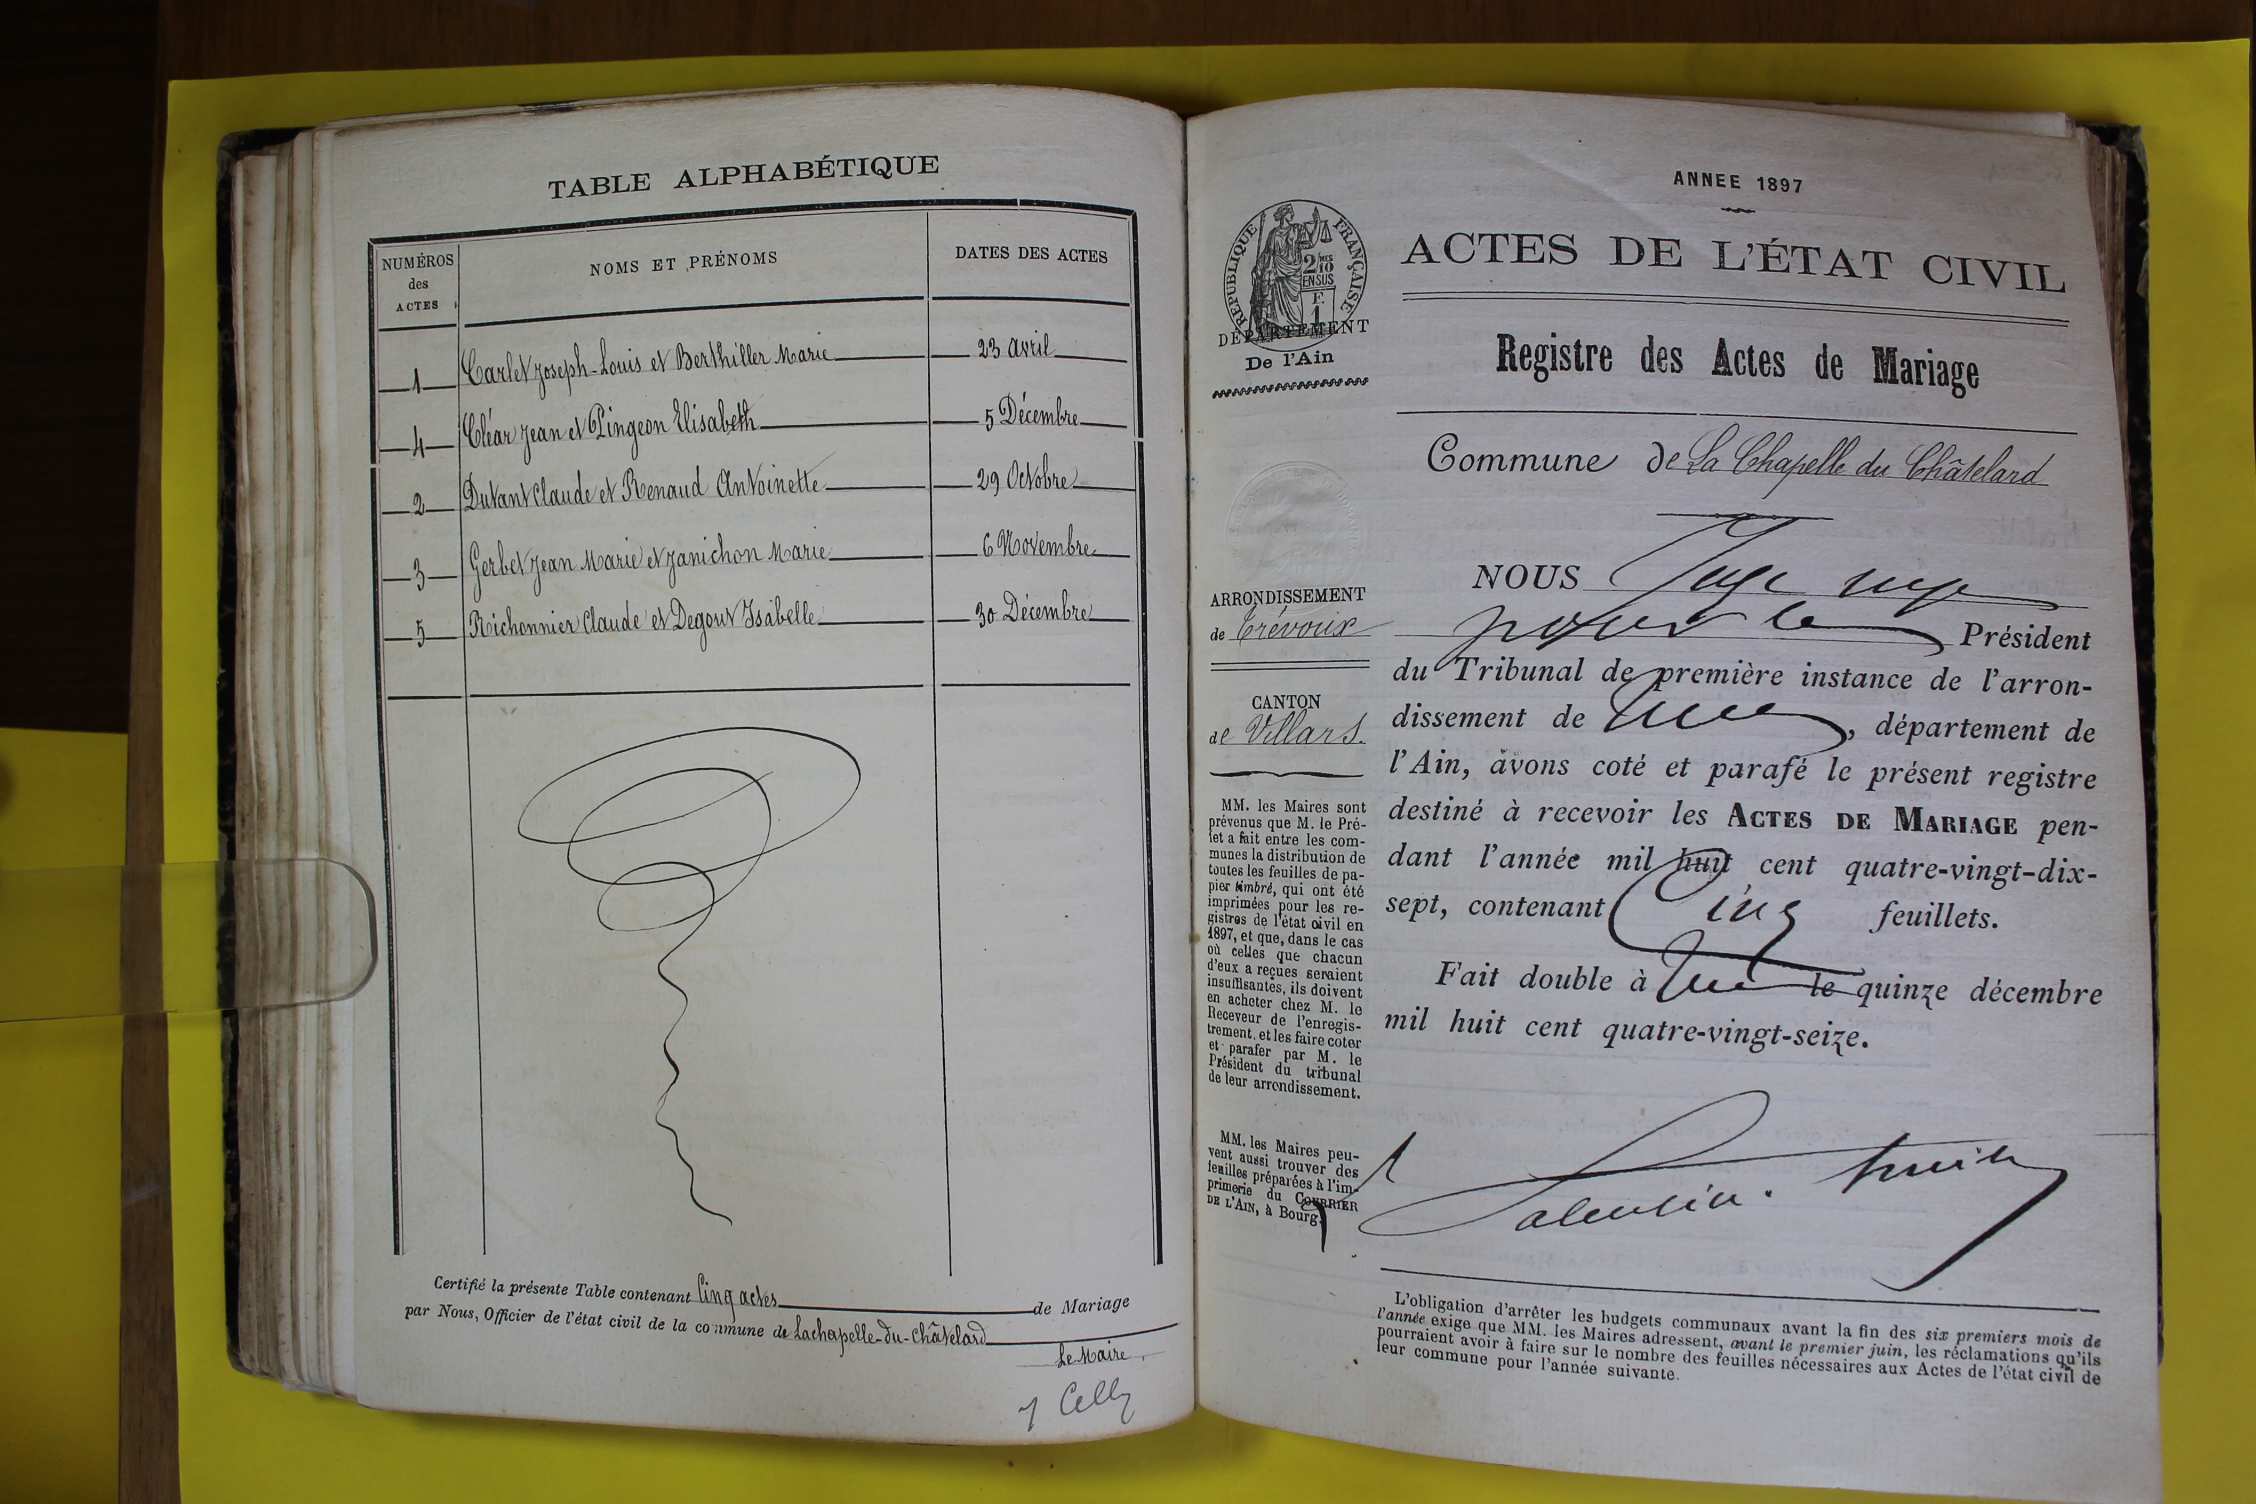 TABLE ALPHABÉTIQUE
NUMÉROS
des
ACTES
NOMS ET PRÉNOMS
DATES DES ACTES
1 Carlet Joseph-Louis et Berthiller Marie 23 avril
4 Cléar Jean et Pingeon Elisabeth 5 Décembre
2 Dutant Claude et Renaud Antoinette 29 Octobre
3 Gerbet Jean Marie et Janichon Marie 6 Novembre
5 Richonnier Claude et Degout Isabelle 30 Décembre
Certifié la présente Table contenant Cinq actes de Mariage
par Nous, Officier de l'état civil de la commune de Lachapelle-du-Châtelard
Le Maire
ANNEE 1897
RÉPUBLIQUE FRANÇAISE
2/10 MES
EN SUS
F.
1
DÉPARTEMENT
De l'Ain
ACTES DE L'ÉTAT CIVIL
Registre des Actes de Mariage
Commune de La Chapelle du Châtelard
ARRONDISSEMENT
de Trévoux
CANTON
de Villars.
MM. les Maires sont
prévenus que M. le Pré-
fet a fait entre les com-
munes la distribution de
toutes les feuilles de pa-
pier timbré, qui ont été
imprimées pour les re-
gistres de l'état civil en
1897, et que, dans le cas
où celles que chacun
d'eux a reçues seraient
insuffisantes, ils doivent
en acheter chez M. le
Receveur de l'enregis-
trement, et les faire coter
et parafer par M. le
Président du tribunal
de leur arrondissement.
MM. les Maires peu-
vent aussi trouver des
feuilles préparées à l'im-
primerie du COURRIER
DE L'AIN, à Bourg.
NOUS Juge
pour le Président
du Tribunal de première instance de l'arron-
dissement de , département de
l'Ain, avons coté et parafé le présent registre
destiné à recevoir les ACTES DE MARIAGE pen-
dant l'année mil huit cent quatre-vingt-dix-
sept, contenant Cinq feuillets.
Fait double à le quinze décembre
mil huit cent quatre-vingt-seize.
L'obligation d'arrêter les budgets communaux avant la fin des six premiers mois de
l'année exige que MM. les Maires adressent, avant le premier juin, les réclamations qu'ils
pourraient avoir à faire sur le nombre des feuilles nécessaires aux Actes de l'état civil de
leur commune pour l'année suivante.